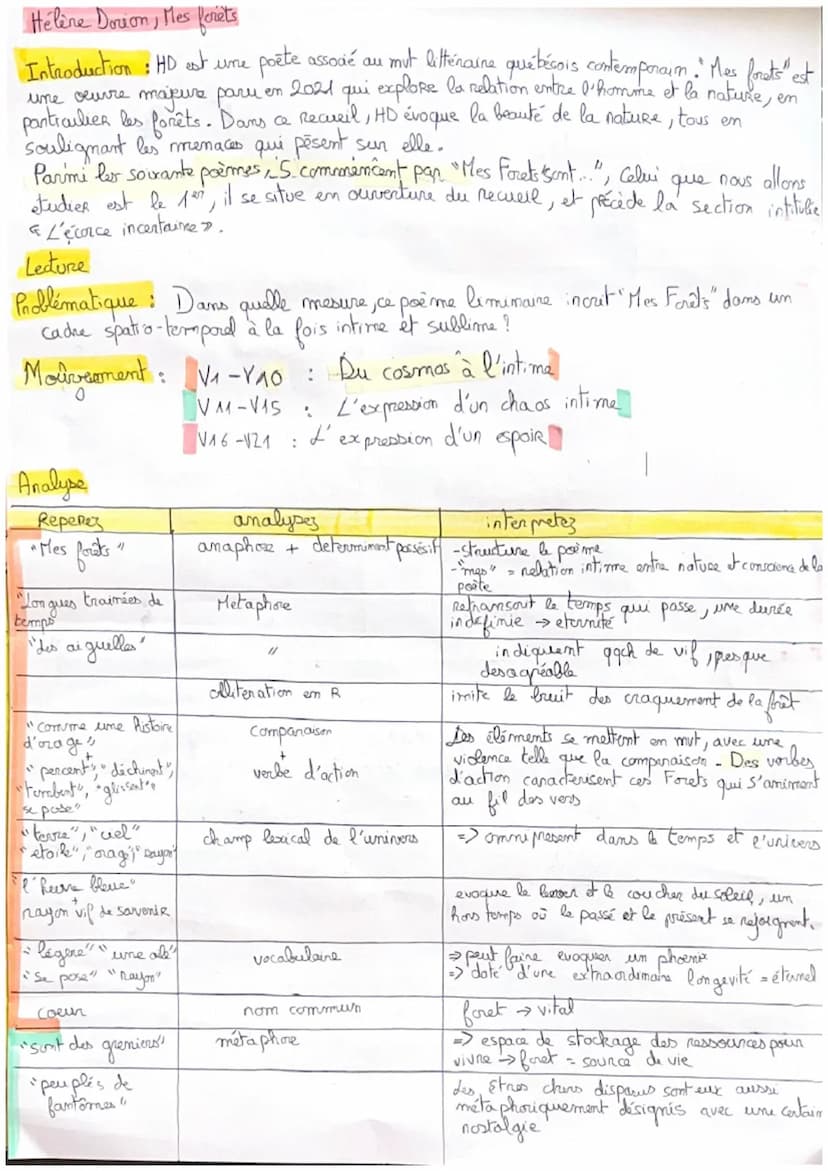 Hélène Dorion, Mes forêts
Introduction : HD est une poète associé au mvt littéraire québécois contemporain. "Mes forêts" est
une œuvre majeure paru en 2021 qui explore la relation entre l'homme et la nature, en
particulier les forêts. Dans ce recueil, HD évoque la beauté de la nature, tous en
soulignant les menaces qui pèsent sur elle.
Parmi les soixante poèmes, 5 commencent par "Mes Forets sont...", Celui que nous allons
étudier est le 1er, il se situe en ouverture du recueil, et précède la section intitulée
« L'écorce incertaine ».
Lecture
Problématique : Dans quelle mesure, ce poème liminaire inscrit "Mes Forêts" dans un
cadre spatio-temporel à la fois intime et sublime ?
Mouvement : V1 - V10 : Du cosmos à l'intime
V11 - V15 : L'expression d'un chaos intime
V16 - V21 : L'expression d'un espoir
Analyse
Reperez analysez interpretez
"Mes forêts" anaphore + determinant possésif - structure le poème
- "mes" = relation intime entre nature et conscience de la
poète
"Longues trainées de Métaphore Retranscrit le temps qui passe, une durée
temps" indéfinie → eternité
"des aiguilles" " indiquent qqch de vif, presque
désagréable
alliteration en R imite le bruit des craquement de la forêt
"comme une histoire comparaison Les éléments se mettent en mvt, avec une
d'orage" + violence telle que la comparaison - Des verbes
+ "percent", "déchirent", verbe d'action d'action caractérisent ces Forets qui s'animent
"tombent", "glissent" au fil des vers
se pose"
"terre", "ciel" champ lexical de l'univers => omniprésent dans le temps et l'univers
"étoile", "orage", rayon"
"l'heure bleue" evoque le lever et le coucher du soleil, un
+
rayon vif de souvenir hors temps où le passé et le présent se rejoignent.
"légère" "une aile" vocabulaire => peut faire evoquer un phoenix
"se pose" "Rayon" => doté d'une extraordinaire longevité = éternel
coeur nom commun foret → vital
"sont des greniers" métaphore => espace de stockage des ressources pour
vivre → foret = source de vie
"peuplés de Les êtres chers disparus sont eux aussi
fantômes" métaphoriquement désignés avec une certain
nostalgie